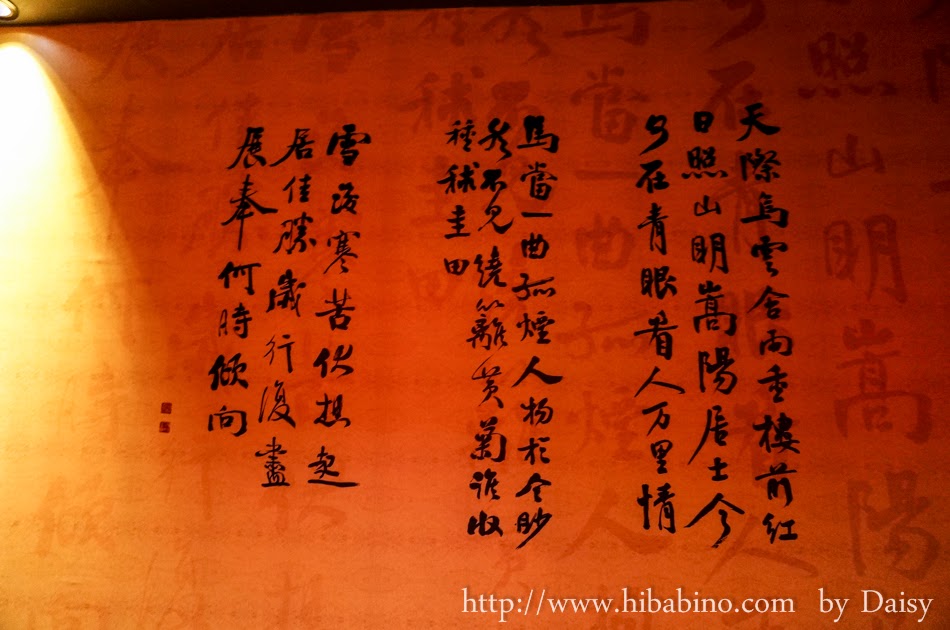 天際烏雲含雨重樓前紅
日照山明嵩陽居士今
何在青眼看人万里情
馬當一曲孤煙人物於今眇
然不見繞籬黃菊誰收
種秫圭田
雪後寒苦伏想起
居佳勝歲行復盡
展奉何時傾向
http://www.hibabino.com by Daisy